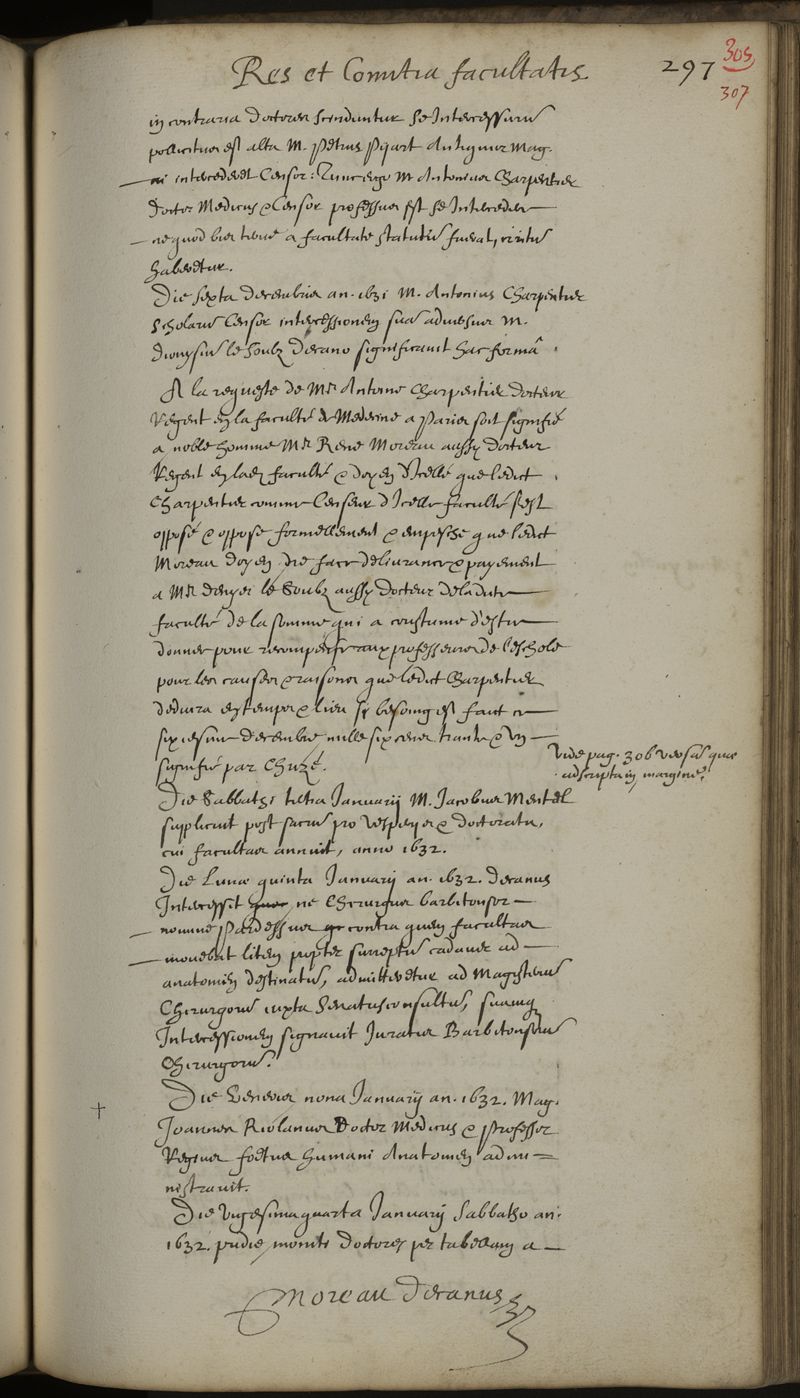 Res et Comitia facultatis 297 305
307
in contraria doctores scinduntur se Intercessurum
pollicitus est alta M. Petrus Pijart Antiquior Mag.
ni intercederet Censor: Tunc ergo M. Antonius Charpentier
Doctor Medicus & Censor professus est se Intercedere
ne quod bis terve a facultate statutum fuerat, irritum
haberetur.
Die sexta decembris an. 1631 M. Antonius Charpentier
scholarum Censor intercessionem suam adversus M.
dionysium le Soubz decano significavit hac formâ.
A la requeste de Mr. Antoine Charpentier docteur
Regent en la faculté de Medecine a Paris soit signifié
a noble homme Mr. Rene Moreau aussy docteur
Regent en lad. faculté & doyen d'Icelle que ledict
Charpentier comme Censeur d'Icelle faculté s'est
opposé & oppose formellement & empesche que ledict
Moreau doyen ne face delivrance & payement
a Mr. denys le Soubz aussy docteur de ladicte
faculté de la somme qui a coustume d'estre
donnee pour recompense aux professeurs de l'eschole
pour les causes & raisons que ledict Charpentier
deduira en temps & lieu si besoing est faict ce
sixiesme decembre mille six cens trante & un
signifié par Chuzé.
Vide pag. 306 versus quae
adscripta in margine.
Die Sabbathi tertia Januarij M. Jacobus Mentel
supplicuit post sacrum pro Vesperijs & doctoratu,
cui facultas annuit, anno 1632.
Die Lunae quinta Januarij an. 1632. decanus
Intercessit ne Chirurgus barbitonsor
nomine Pardessus contra quem facultas
movebat litem propter surreptum cadaver ad
anatomen destinatum, admitteretur ad Magisterium
Chirurgorum iuxta Senatusconsultum, suamq
Intercessionem signavit Juratis Barbitonsorum
Chirurgorum.
+ Die Veneris nona Januarij an. 1632. Mag.
Joannes Riolanus Doctor Medicus & Professor
Regius foetus humani Anatomen admi=
nistravit.
Die Vigesimaquarta Januarij Sabbatho an.
1632. pridie moniti doctores per tabellam a
Moreau decanus